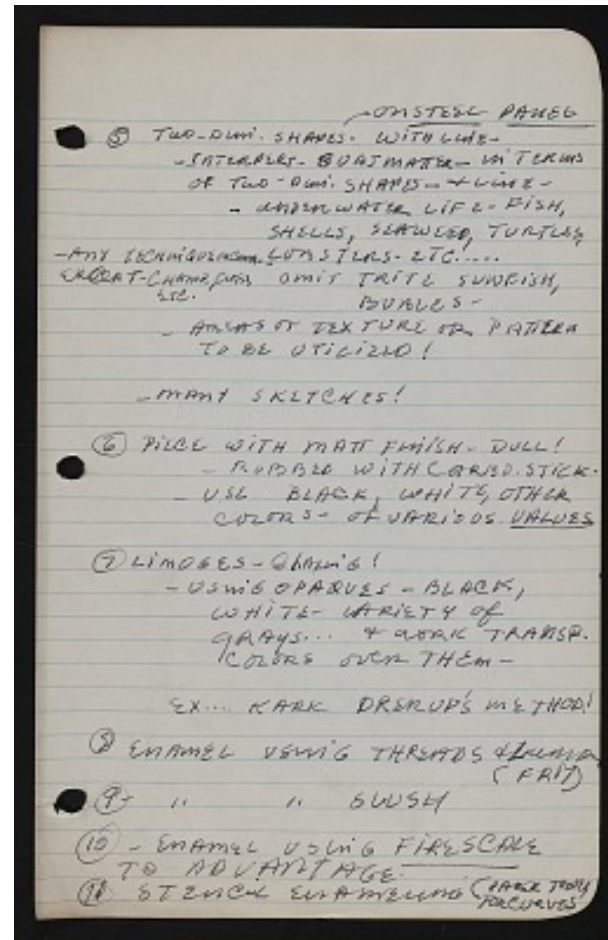 - ON STEEL PANEL
⑤ TWO-DIM. SHAPES - WITH LINE -
- INTERPERT - SUBJ MATER - IN TERMS
OF TWO-DIM. SHAPES - + LINE -
- UNDERWATER LIFE - FISH,
SHELLS, SEAWEED, TURTLES,
- ANY TECHNIQUE LOBSTERS - ETC.....
EXCEPT - CHAMP, CLOIS OMIT TRITE SUNFISH,
ETC. BUBLES -
- AREAS OF TEXTURE OR PATTERN
TO BE UTILIZED!
- MANY SKETCHES!
⑥ PIECE WITH MATT FINISH - DULL!
- RUBBED WITH CARBO. STICK.
- USE BLACK, WHITE, OTHER
COLORS - OF VARIOUS VALUES
⑦ LIMOGES -
- USING OPAQUES - BLACK,
WHITE - VARIETY OF
GRAYS... + WORK TRANSP.
COLORS OVER THEM -
EX.... KARK DRERUP'S METHOD!
⑧ ENAMEL USING THREADS &
(FRIT)
⑨ - " " SLUSH
⑩ - ENAMEL USING FIRESCALE
TO ADVANTAGE.
⑪ STENCIL ENAMELING (PAPER TOWEL
FOR CURVES